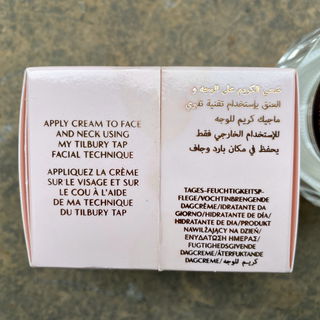 APPLY CREAM TO FACE
AND NECK USING
MY TILBURY TAP
FACIAL TECHNIQUE
APPLIQUEZ LA CRÈME
SUR LE VISAGE ET SUR
LE COU À L'AIDE
DE MA TECHNIQUE
DU TILBURY TAP
ضعي الكريم على الوجه و
العنق بإستخدام تقنية نقري
ماجيك كريم للوجه
للإستخدام الخارجي فقط
يحفظ في مكان بارد وجاف
TAGES-FEUCHTIGKEITSP-
FLEGE/VOCHTINBRENGENDE
DAGCRÈME/IDRATANTE DA
GIORNO/HIDRATANTE DE DÍA/
HIDRATANTE DE DIA/PRODUKT
NAWILŻAJĄCY NA DZIEŃ/
ΕΝΥΔΑΤΩΣΗ ΗΜΕΡΑΣ/
FUGTIGHEDSGIVENDE
DAGCREME/ÅTERFUKTANDE
DAGCREME/ كريم للوجه